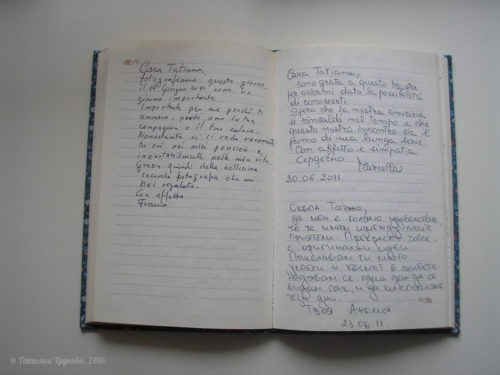 Cara Tatiana,
fotografiamo questo giorno,
il 18 Giugno 2011 come un
giorno importante.
Importante per me perché ti
ammiro, perché amo la tua
compagnia e il tuo calore.
Nonostante ci si veda raramente
tu sei nei miei pensieri e
inevitabilmente nella mia vita,
grazie quindi della bellissima
seconda fotografia che mi
hai regalato.
Con affetto
Cara Tatiana,
sono grata a questo Master
per avermi dato la possibilità
di conoscerti.
Spero che la nostra amicizia
si rinsaldi nel tempo e che
questo nostro incontro sia il
primo di una lunga serie.
Con affetto e simpatia
Marcella
30.06.2011
Скъпа Татяна,
за мен е голямо удоволствие,
че те имам
приятели. Прекрасен човек,
с оригинални идеи.
Пожелавам ти много
успехи и късмет в живота.
Надявам се един ден да се
видим пак, и да
тези дни.
Твоя Анелия
23.06.11.
© Татьяна Трунова, 2016